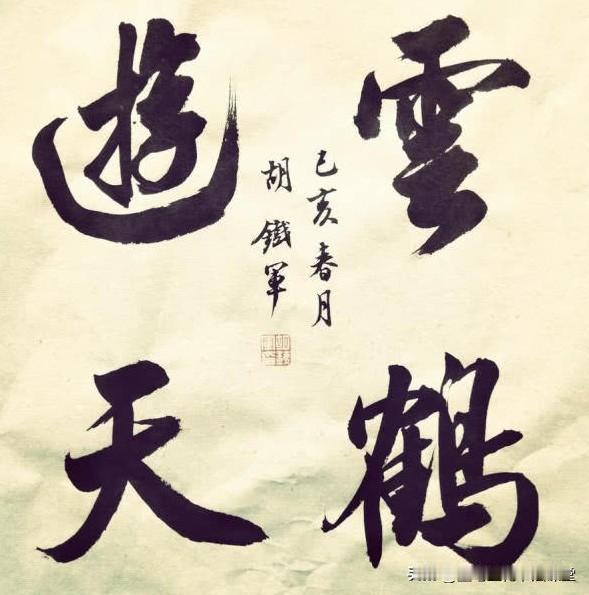 雲鶴
遊天
己亥春月
胡鐵軍